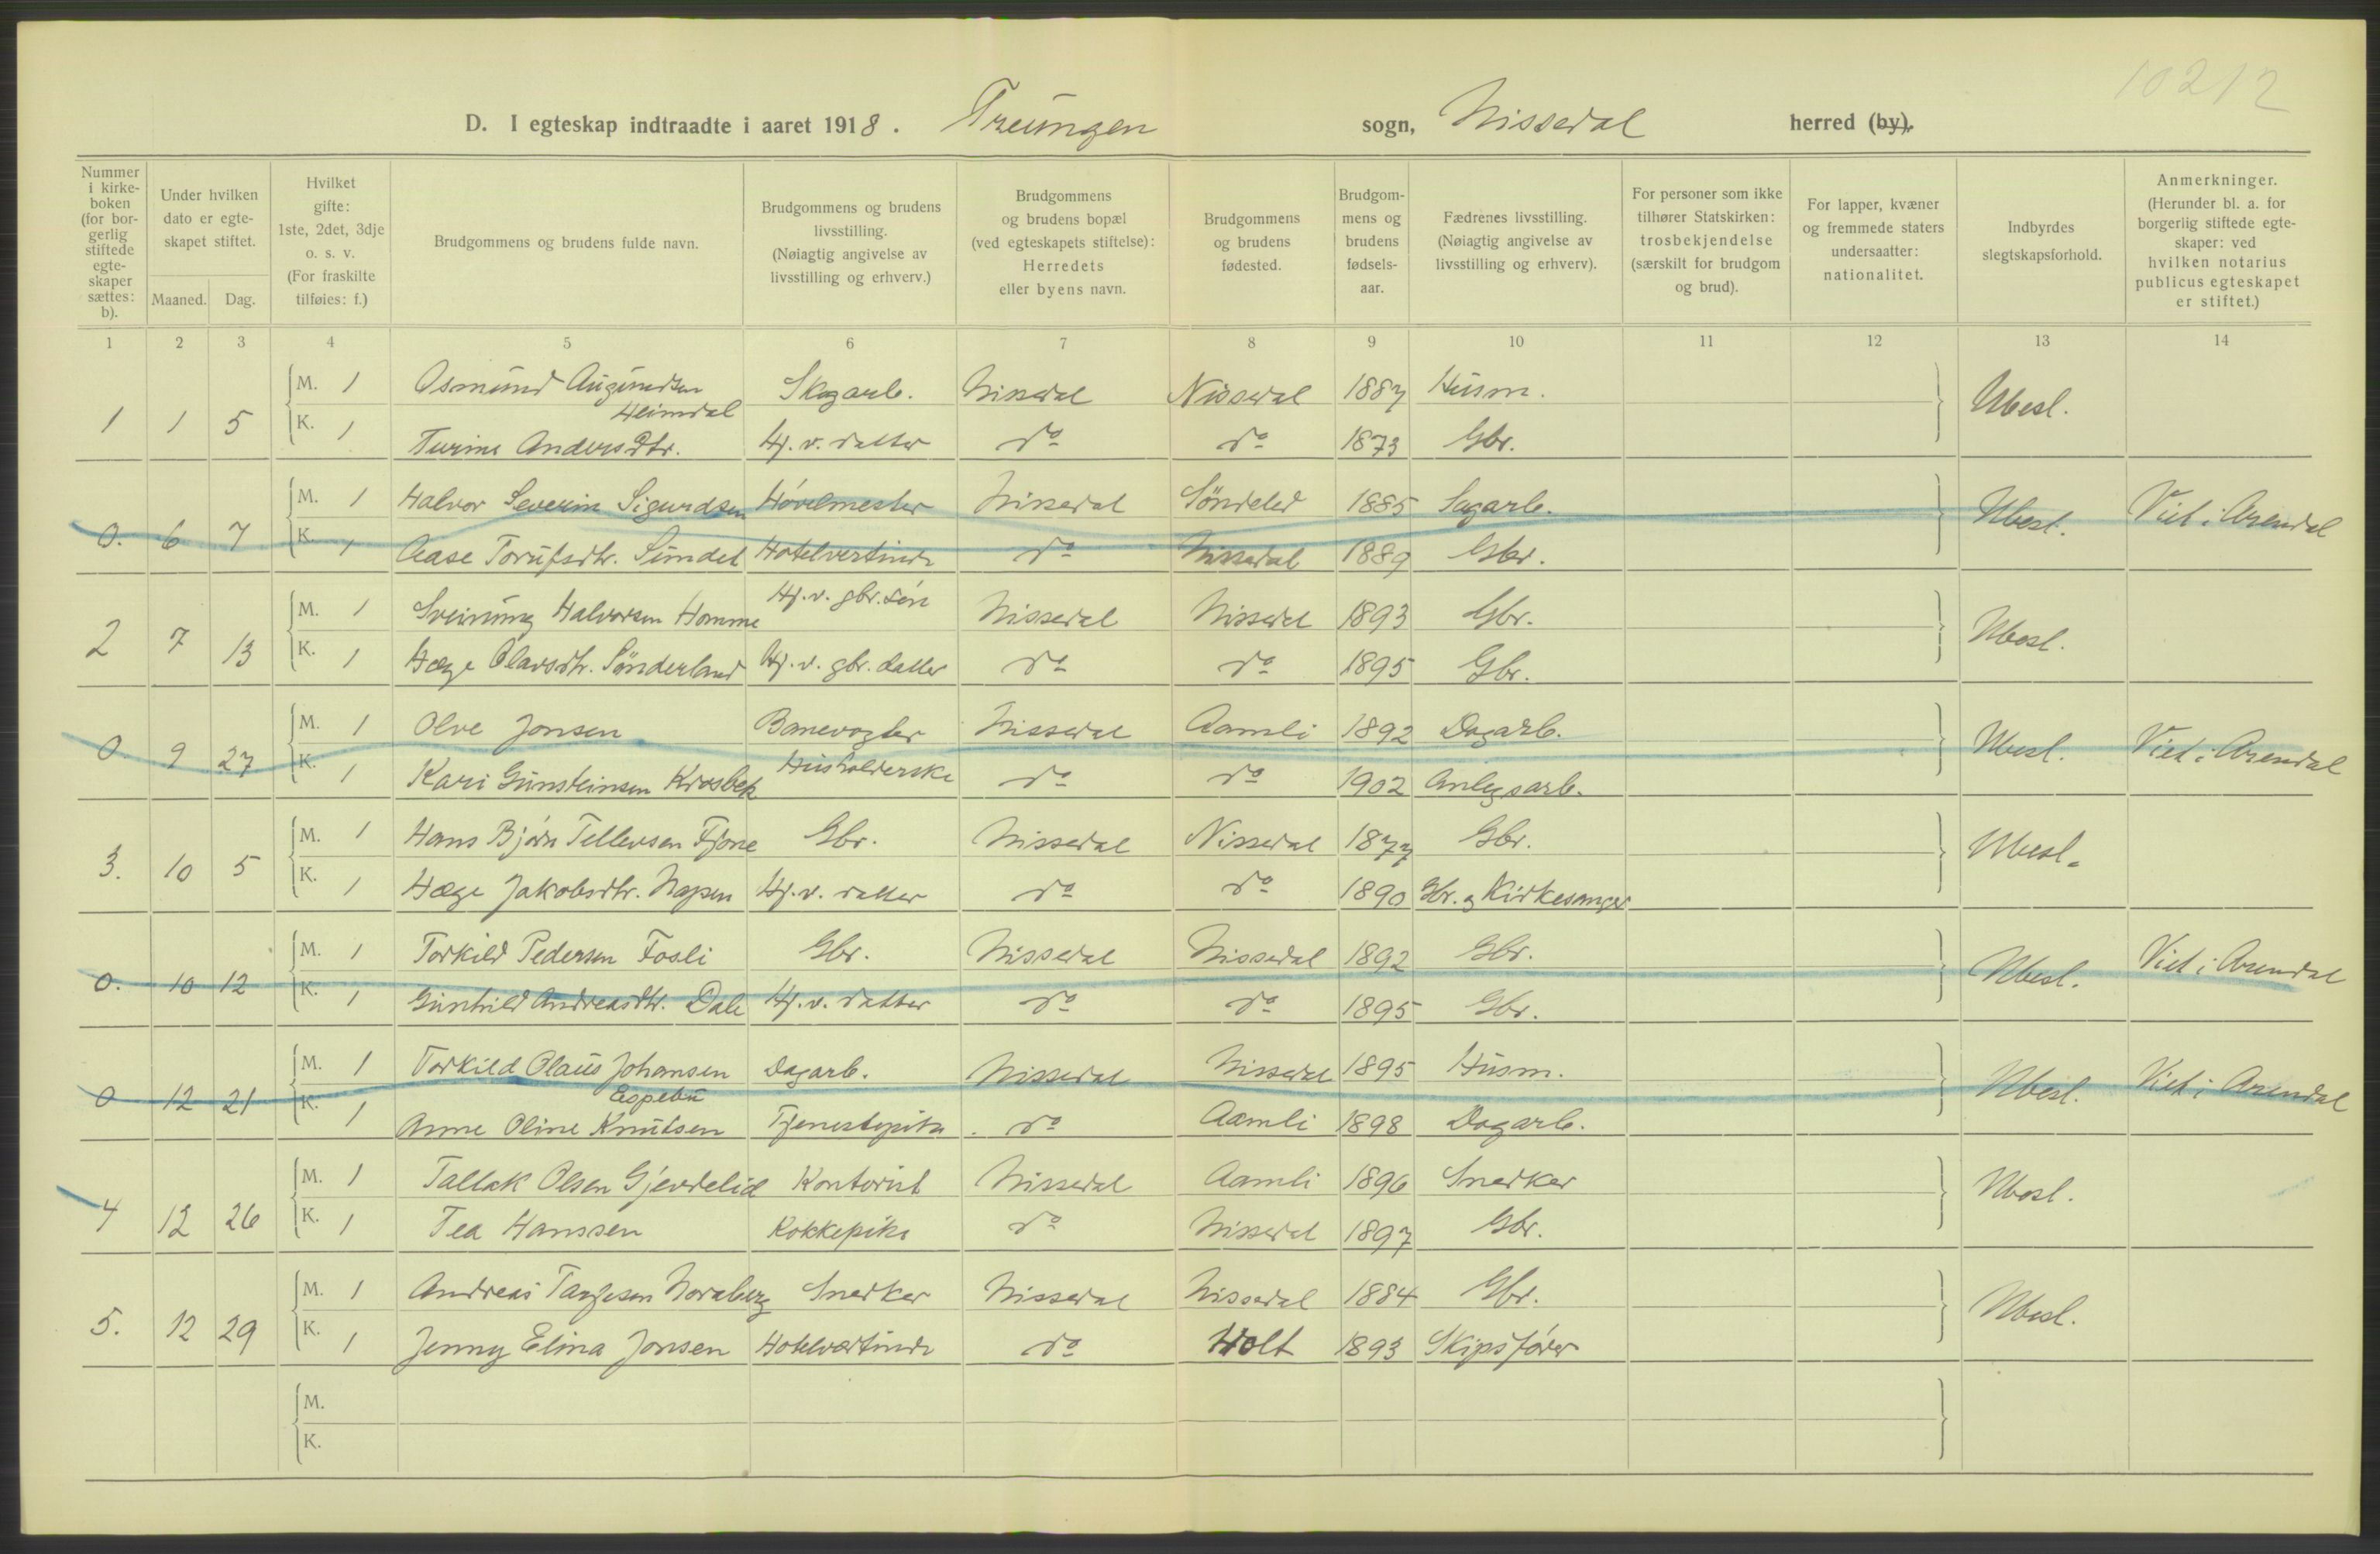 10212
D. I egteskap indtraadte i aaret 1918. Treungen sogn, Nissedal herred (by).
Nummer i kirke-boken (for bor-gerlig stiftede egte-skaper sættes: b).
Under hvilken dato er egte-skapet stiftet.
Maaned. Dag.
Hvilket gifte: 1ste, 2det, 3dje o. s. v. (For fraskilte tilføies: f.)
Brudgommens og brudens fulde navn.
Brudgommens og brudens livsstilling. (Nøiagtig angivelse av livsstilling og erhverv.)
Brudgommens og brudens bopæl (ved egteskapets stiftelse): Herredets eller byens navn.
Brudgommens og brudens fødested.
Brudgom-mens og brudens fødsels-aar.
Fædrenes livsstilling. (Nøiagtig angivelse av livsstilling og erhverv).
For personer som ikke tilhører Statskirken: trosbekjendelse (særskilt for brudgom og brud).
For lapper, kvæner og fremmede staters undersaatter: nationalitet.
Indbyrdes slegtskapsforhold.
Anmerkninger. (Herunder bl. a. for borgerlig stiftede egte-skaper: ved hvilken notarius publicus egteskapet er stiftet.)
1 2 3 4 5 6 7 8 9 10 11 12 13 14
M. 1 Osmund Augundsen Heimdal Skogarb. Nissedal Nissedal 1887 Husm.
1 1 5 Ubesl.
K. 1 Turine Andersdtr. Hj. v. datter do do 1873 Gbr.
M. 1 Halvor Severin Sigurdsen Høvelmester Nissedal Söndeled 1885 Sagarb.
0. 6 7 Ubesl. Viet i Arendal
K. 1 Aase Torufsdtr. Sundet Hotelvertinde do Nissedal 1889 Gbr.
M. 1 Sveinung Halvorsen Homme Hj. v. gbr. søn Nissedal Nissedal 1893 Gbr.
2 7 13 Ubesl.
K. 1 Hæge Olavsdtr. Sönderland Hj. v. gbr. datter do do 1895 Gbr.
M. 1 Olve Jonsen Banevogter Nissedal Aamli 1892 Dagarb.
0 9 27 Ubesl. Viet i Arendal
K. 1 Kari Gunsteinsen Krosbek Husholderske do do 1902 Anlegsarb.
M. 1 Hans Bjørn Tellevsen Fjone Gbr. Nissedal Nissedal 1877 Gbr.
3. 10 5 Ubesl.
K. 1 Hæge Jakobsdtr. Napen Hj. v. datter do do 1890 Gbr. og Kirkesanger
M. 1 Torkild Pedersen Fosli Gbr. Nissedal Nissedal 1892 Gbr.
0. 10 12 Ubesl. Viet i Arendal
K. 1 Gunhild Andreasdtr. Dale Hj. v. datter do do 1895 Gbr.
M. 1 Torkild Olaus Johansen Espebu Dagarb. Nissedal Nissedal 1895 Husm.
0 12 21 Ubesl. Viet i Arendal
K. 1 Anne Oline Knutsen Tjenestepike do Aamli 1898 Dagarb.
M. 1 Tallak Olsen Gjevdelid Kontorist Nissedal Aamli 1896 Snedker
4 12 26 Ubesl.
K. 1 Tea Hanssen Kokkepike do Nissedal 1897 Gbr.
M. 1 Andreas Targesen Nordberg Snedker Nissedal Nissedal 1884 Gbr.
5. 12 29 Ubesl.
K. 1 Jenny Elina Jonsen Hotelvertinde do Holt 1893 Skipsfører
M.
K.